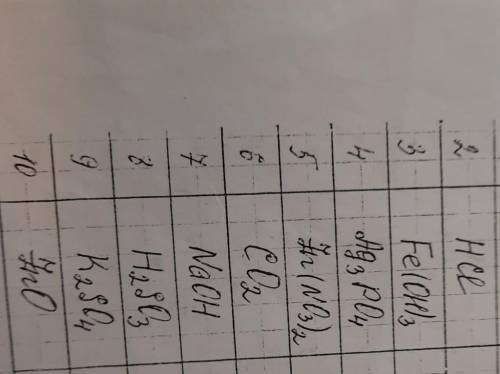 2 HCl
3 Fe(OH)3
4 Ag3PO4
5 Zn(NO3)2
6 CO2
7 NaOH
8 H2SO3
9 K2SO4
10 ZnO